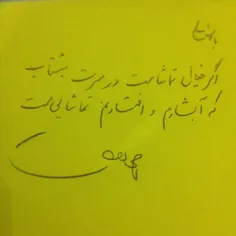 اگر خیال تماشاست در سرت بشتاب
که آبشارم و افتادنم تماشایی‌ست